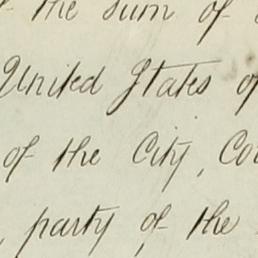 the sum of
United States of
of the City, Cou
, party of the